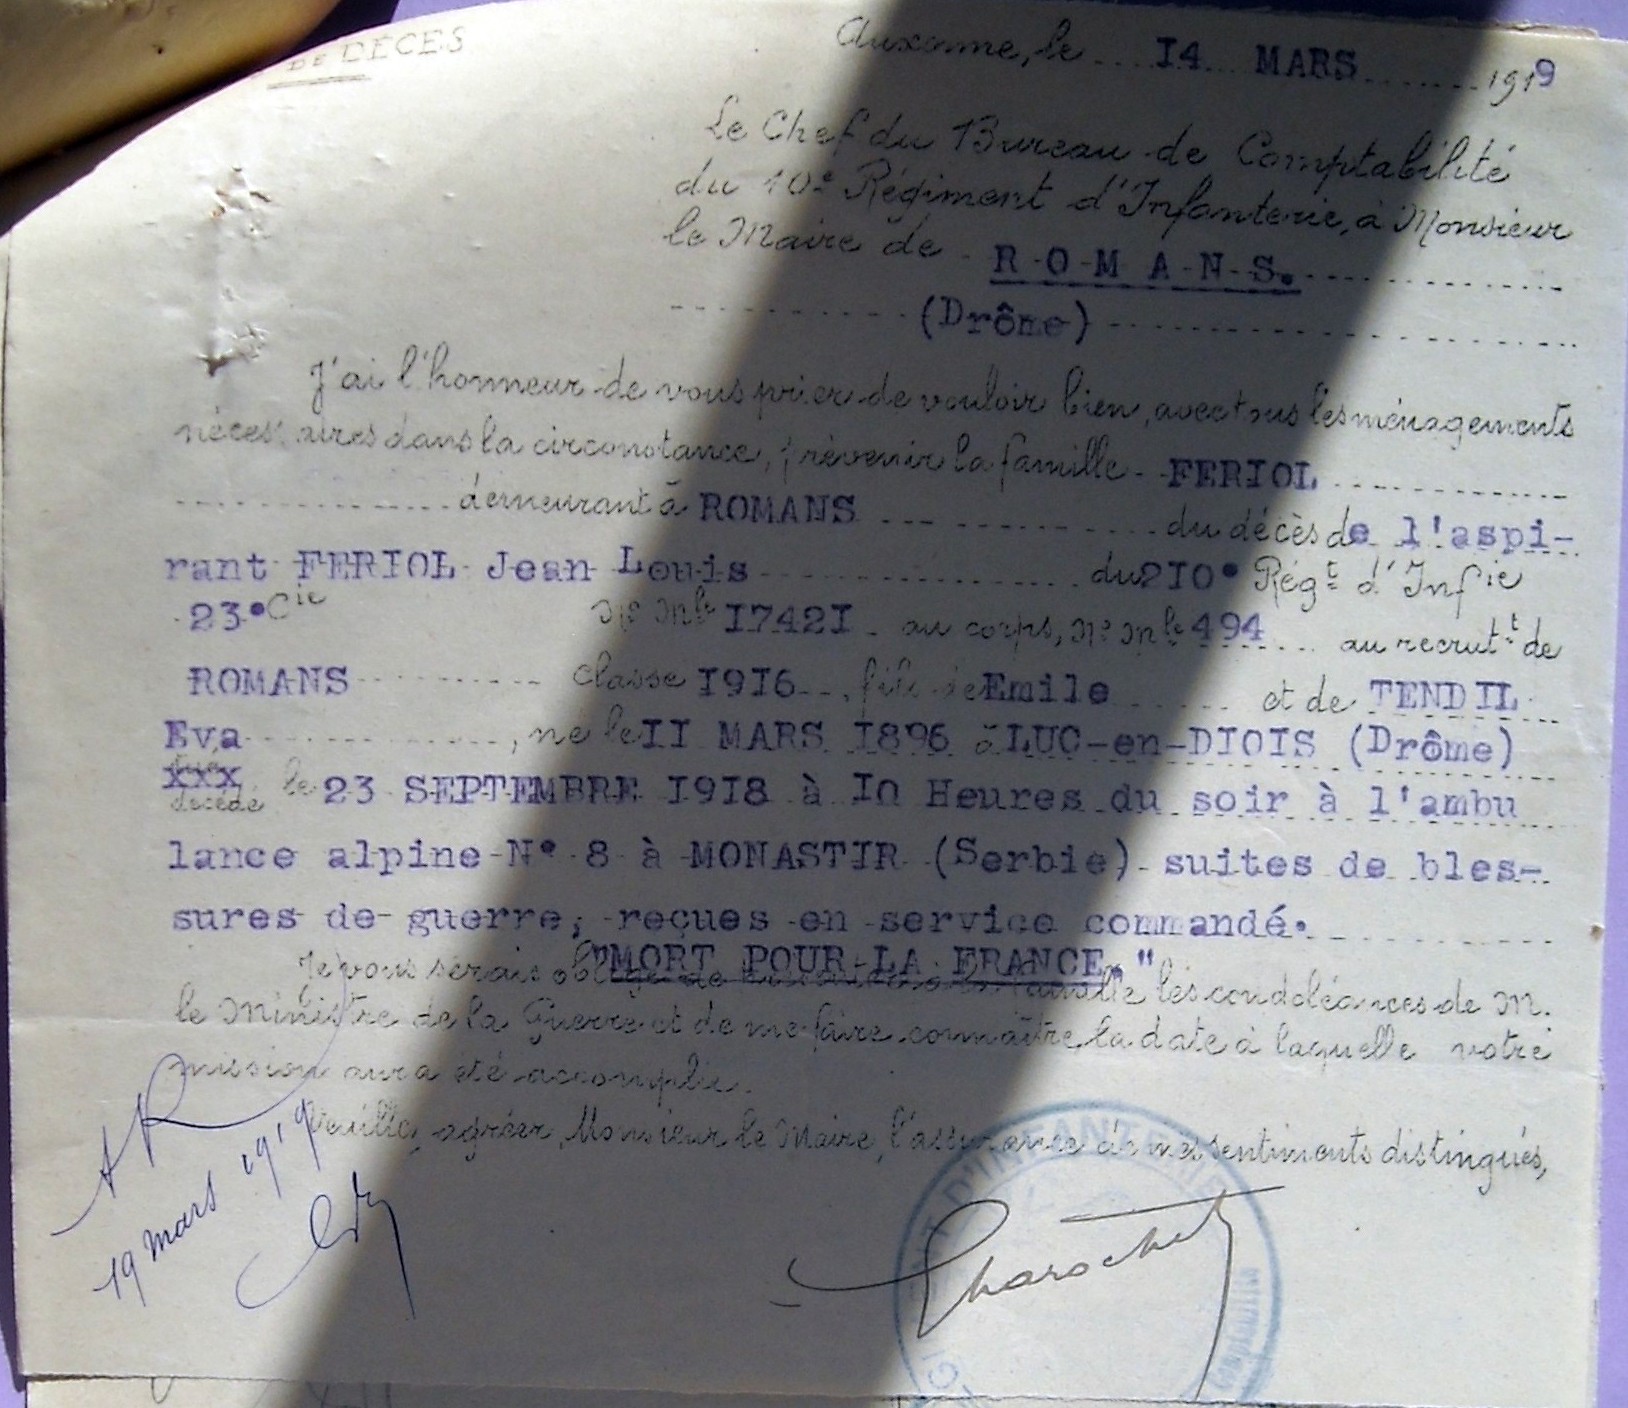 DE DÉCES
Auxonne, le 14 MARS 1919
Le Chef du Bureau de Comptabilité
du 10e Régiment d'Infanterie, à Monsieur
le Maire de R-O-M A-N-S.
(Drôme)
J'ai l'honneur de vous prier de vouloir bien, avec tous les ménagements
nécessaires dans la circonstance, prévenir la famille FERIOL
demeurant à ROMANS du décès de l'aspi-
rant FERIOL Jean Louis du 210° Régt d'Infie
23°Cie No Mle 17421 au corps, No Mle 494 au recrutt de
ROMANS classe 1916, fils de Emile et de TENDIL
Eva, né le 11 MARS 1896 à LUC-en-DIOIS (Drôme)
xxx
décédé le 23 SEPTEMBRE 1918 à 10 Heures du soir à l'ambu
lance alpine N° 8 à MONASTIR (Serbie) suites de bles-
sures de guerre, reçues en service commandé.
"MORT POUR LA FRANCE."
Je vous serais obligé de à la famille les condoléances de M.
le Ministre de la Guerre et de me faire connaître la date à laquelle votre
mission aura été accomplie.
Veuillez agréer, Monsieur le Maire, l'assurance de mes sentiments distingués,
AR
19 mars 1919
D'INFANTERIE